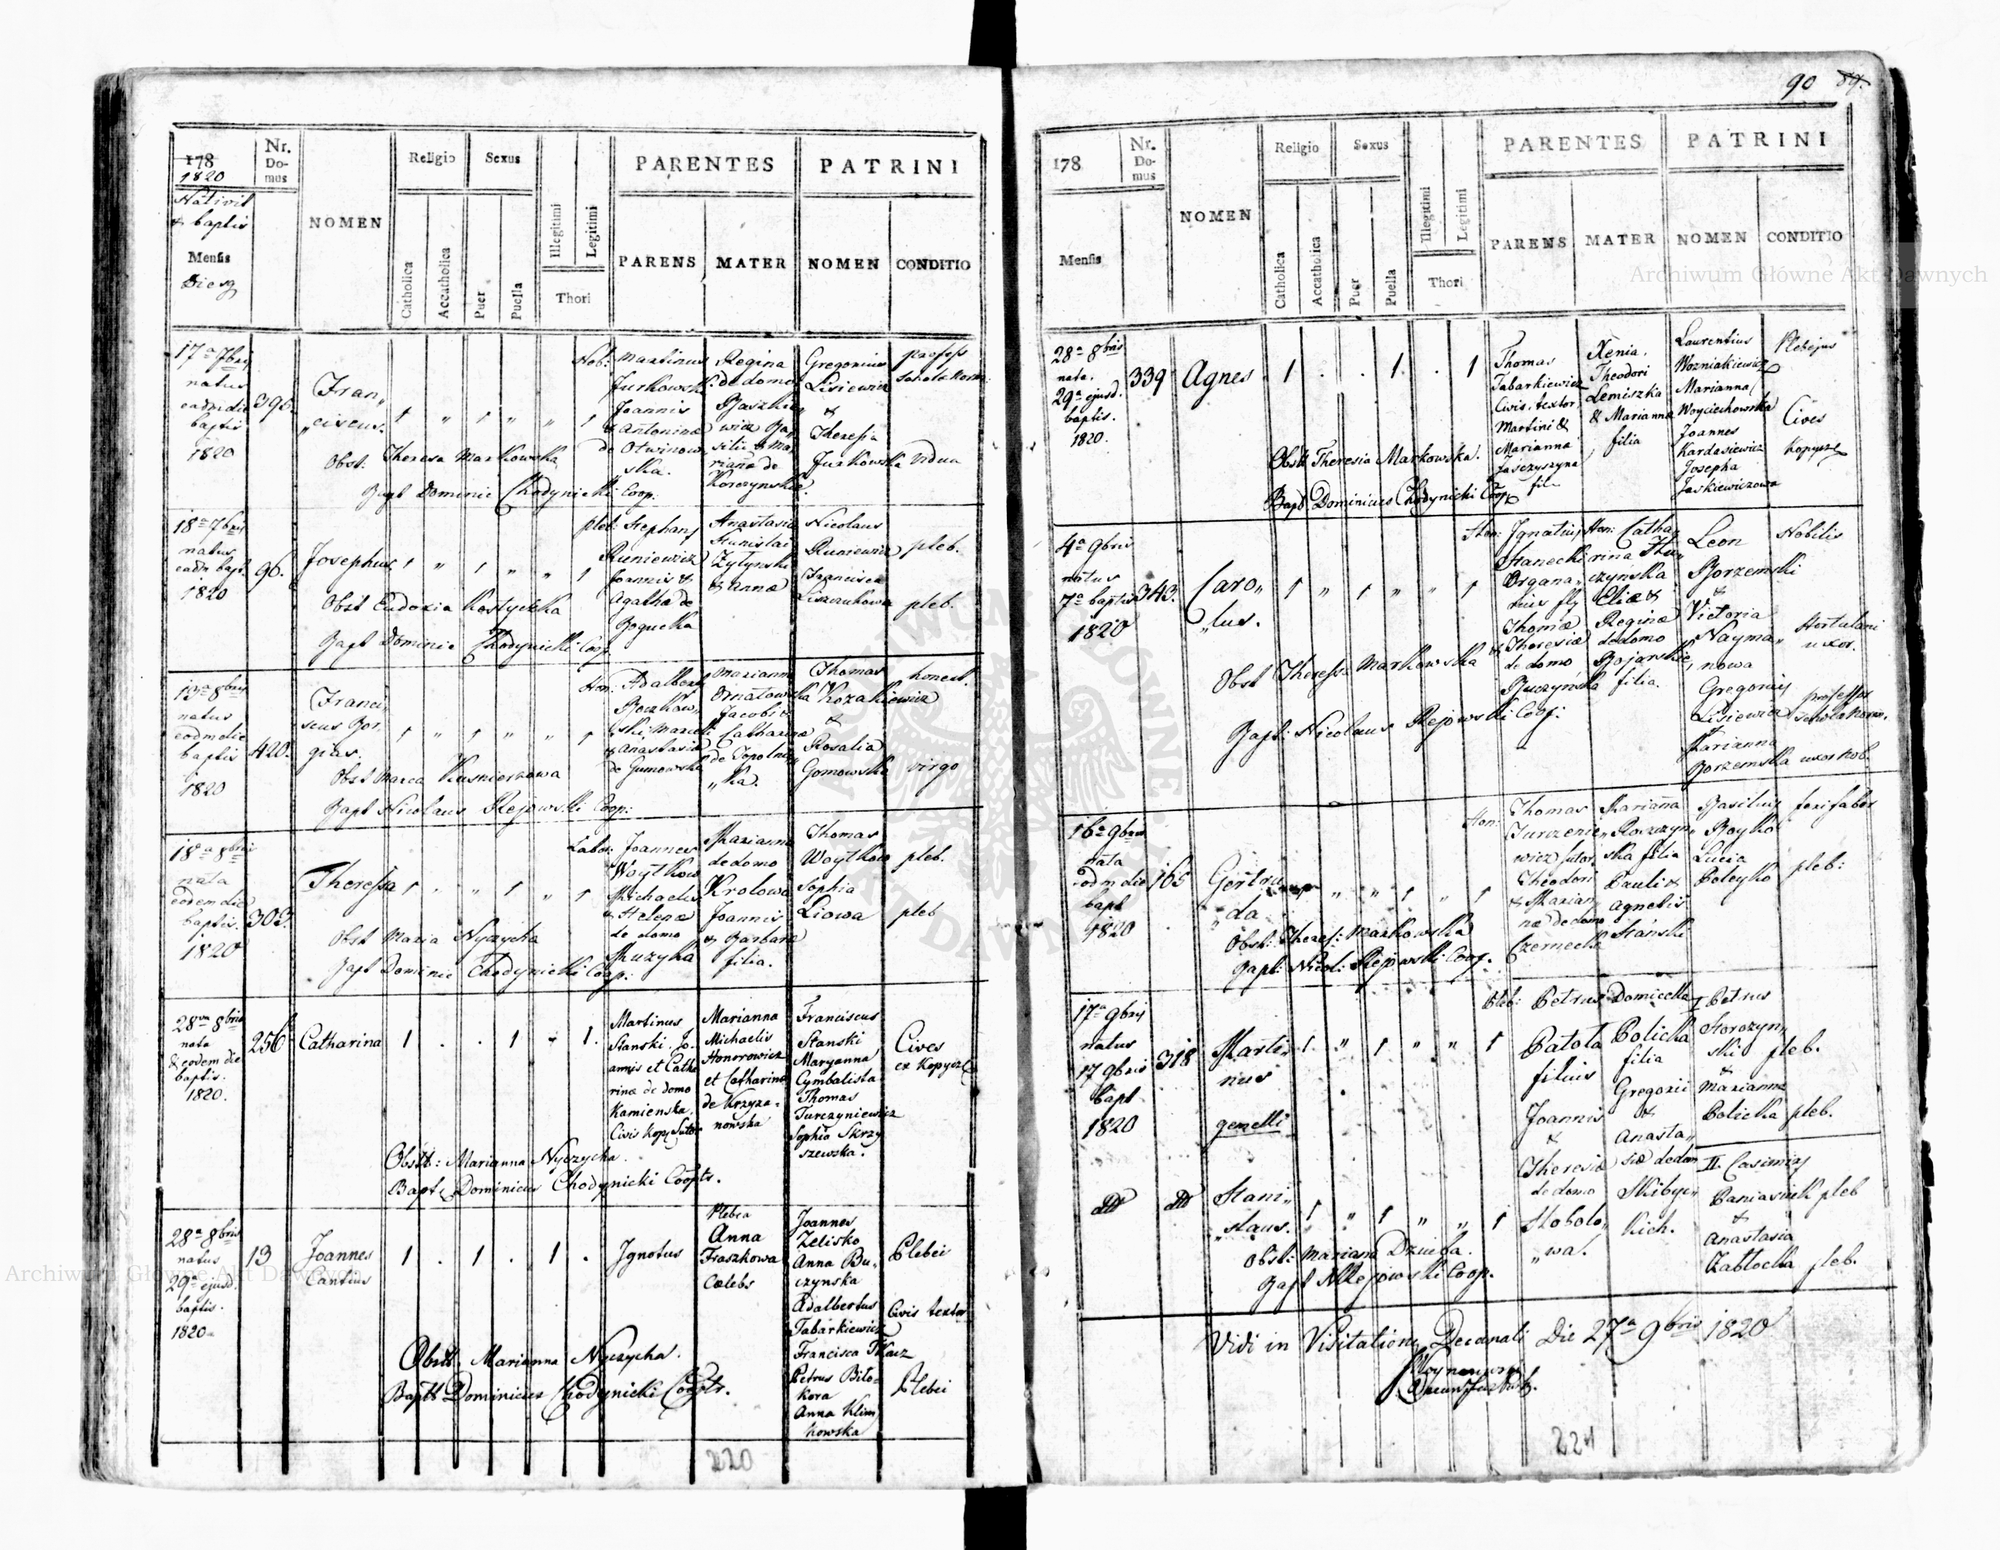 90 89.
178
1820
Nr. Domus
NOMEN
Religio
Sexus
PARENTES
PATRINI
Nativit
& baptis
Mensis
Dies
Catholica
Accatholica
Puer
Puella
Illegitimi
Legitimi
Thori
PARENS
MATER
NOMEN
CONDITIO
17a 7bris
natus
eadm die
baptis
1820
Fran„
„ciscus.
1 „ 1 „ „ 1
Nob: Martinus
Jurkowski
Joannis
& Antoninæ
de Otwinow„
ska.
Regina
de domo
Gregorius
Lisiewicz
&
Theresia
Jurkowska
vidua
Obst: Theresa Markowska
Bapt Dominic Chodynicki Coop:
18a 7bris
natus
eadm bapt.
1820
96.
Josephus
1 „ 1 „ „ 1
pleb: Stephanus
Runiewicz
Joannis &
Agathæ de
Bogucka
Anastasia
Stanislai
Zytynski
& Annæ
Nicolaus
Runiewicz
Francisca
pleb.
pleb.
Obst Eudoxia Kostyszka
Bapt Dominic Chodynicki Coop.
natus
eodm die
baptis
1820
420.
Franci„
scus Bor„
gias.
1 „ 1 „ „ 1
Hon: Adalbert
& Anastasiæ
de Gumowska
Marianna
Ornatowska
Jacobi &
Catharinæ
de Topolnic„
„ka.
Thomas
Kozakiewicz
&
Rosalia
Gomowska
honest.
virgo
Obst Maria Kusnierzowa
Bapt Nicolaus Rejowski Coop:
18a 8bris
nata
eodem die
baptis.
1820
303.
Theressa
1 „ „ 1 „ 1
Labor: Joannes
Woytkow
Michaelis
& Helenæ
de domo
Muzyka
Marianna
de domo
Krolowa
Joannis
& Barbaræ
filia.
Thomas
Woytkow
Sophia
Liowa
pleb.
pleb
Obst Maria Nyzycha
Bapt Dominic Chodynicki Coop:
28va 8bris
nata
& eodem die
baptis.
1820.
256
Catharina
1 . . 1 . 1.
Martinus
Stanski Jo„
annis et Catha
rinæ de domo
Kamienska.
Civis Kop. Sutor
Marianna
Michaelis
Honorowicz
et Catharinæ
de Krzyza„
nowska
Franciscus
Stanski
Maryanna
Cymbalista
Thomas
Turczyniewicz
Sophia Skrzy
szewska.
Cives
ex Kopycz
Obstt: Marianna Nyczycha.
Bapt. Dominicus Chodynicki Cooptr.
28a 8bris
natus
29a ejusd.
baptis.
1820.
13
Joannes
Cantius
1 . 1 . 1 .
Ignotus
Plebea
Anna
Fraszkowa
Cælebs
Joannes
Zelisko
Anna Bu„
czynska
Adalbertus
Tabarkiewicz
Francisca Tkacz
Petrus Bilo„
kora
Anna Klim
kowska
Plebei
Civis textor
Plebei
Obstt. Marianna Nyczycha.
Baptt Dominicus Chodynicki Cooptr.
220
178
Nr. Domus
NOMEN
Religio
Sexus
PARENTES
PATRINI
Mensis
Catholica
Accatholica
Puer
Puella
Illegitimi
Legitimi
Thori
PARENS
MATER
NOMEN
CONDITIO
28a 8bris
nata.
29a ejusd.
baptis.
1820.
339
Agnes
1 . . 1 . 1
Thomas
Tabarkiewicz
Civis, textor,
Martini &
Marianna
Jasczyszyna
fil.
Xenia,
Theodori
Lemiszka
& Marianna
filia
Laurentius
Wozniakiewicz
Marianna
Woyciechowska
Joannes
Kardasiewicz
Josepha
Jaskiewiczowa
Plebejus
Cives
Kopycz
Obstt Theresia Markowska.
Bapt Dominicus Chodynicki Coop
4a 9bris
natus
7a baptis
1820
343.
Caro„
„lus.
1 „ 1 „ „ 1
Hon: Ignatius
Stanecki
Organa„
rius fil
Thomæ
& Theresiæ
de domo
Buczynska
Hon: Catha„
rina Stu„
czynska
Eliæ &
Reginæ
de domo
Bojarskie,
filia.
Leon
Borzemski
&
Victoria
Nayma„
nowa
Gregorius
Lisiewicz
&
Marianna
Borzemska
Nobilis
Hortulani
uxor.
professor
schola Norm.
uxor Nob.
Obst Theress: Markowska
Bapt: Nicolaus Rejowski Coop:
16a 9bris
nata
eodm die
bapt
1820
165
Gertru„
„da
„ „ 1 „ 1
Hon: Thomas
Turczynie„
wicz sutor
Theodori
& Marian„
næ de domo
Czernecka
Marianna
Roczyn„
ska filia
Pauli &
Agnetis
Stanski
Basilius
Boyko
Lucia
Boleyko
ferrifaber
pleb:
Obst: Theres: Markowska
Bapt: Nicol: Rejowski Coop.
17a 9bris
natus
17 9bris
bapt
1820
318
Marti„
nus
gemelli
1 „ 1 „ „ 1
Pleb: Petrus
Patota
filius
Joannis
&
Theresiæ
de domo
Stobolo„
„wa.
Domicella
Bolicka
filia
Gregorii
&
Anasta„
siæ de dom
Skibyc„
kich.
I Petrus
Storozyn„
ski
&
Marianna
Bolicka
pleb.
pleb.
dtt
dtt
Stani„
„slaus.
1 „ 1 „ „ 1
II. Casimirus
Baniasiuk pleb
&
Anastasia
Zablocka pleb.
Obst: Mariana Dziuba.
Bapt N Rejowski Coop.
Vidi in Visitatione Decanali Die 27a 9bris 1820
221